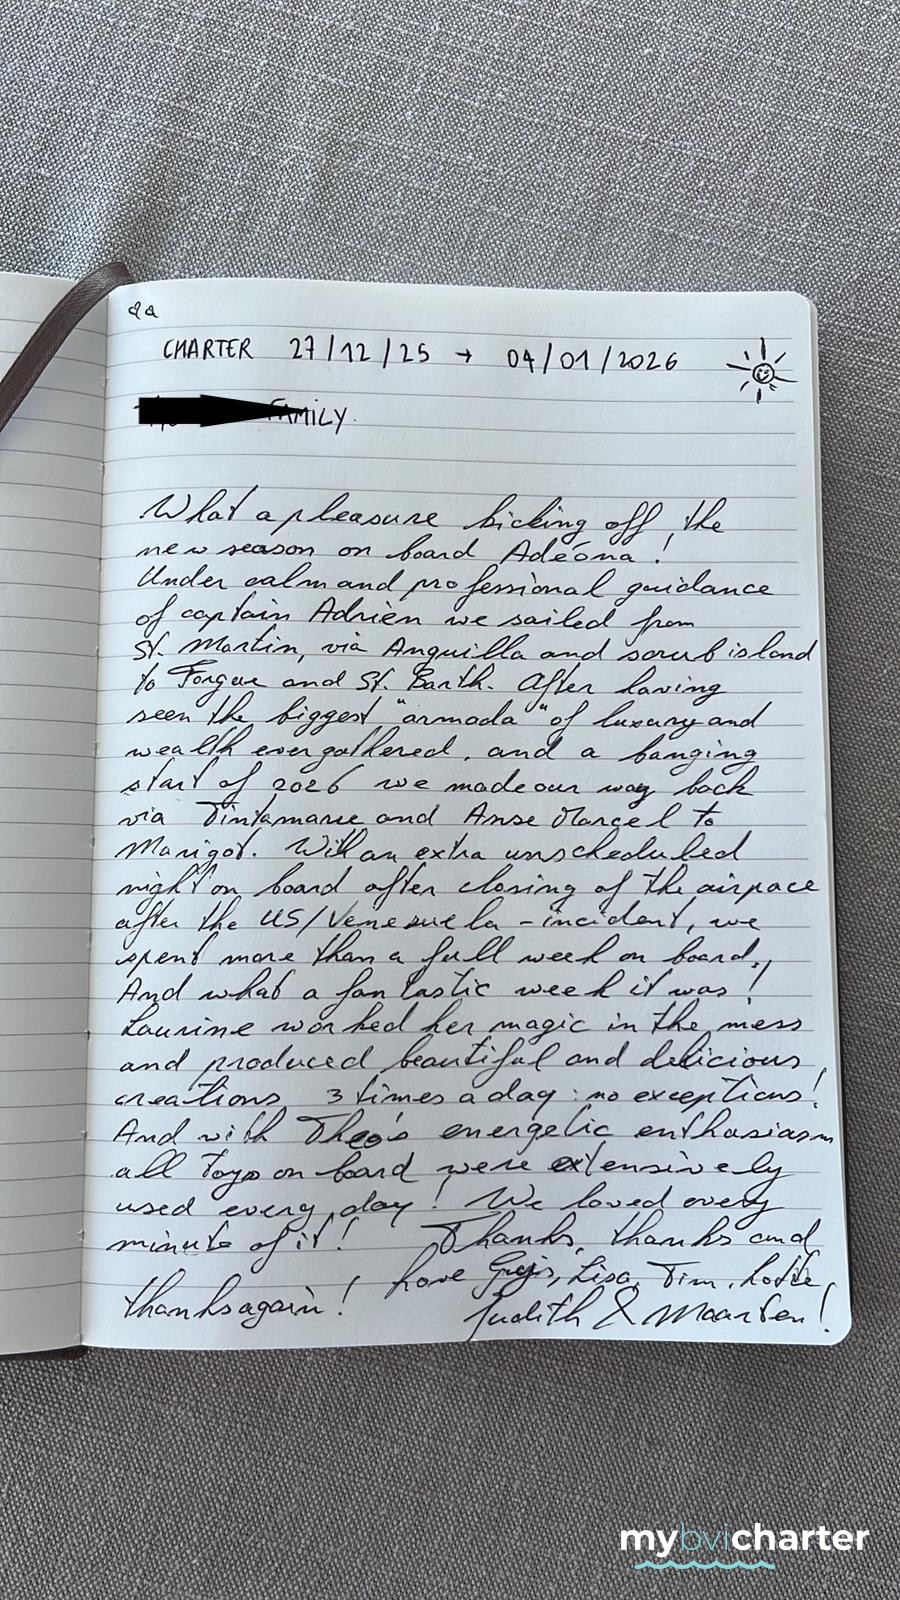 CHARTER 27/12/25 → 04/01/2026
FAMILY.
What a pleasure kicking off the
new season on board Adéona!
Under calm and professional guidance
of captain Adrien we sailed from
St. Martin, via Anguilla and scrub island
to Forgue and St. Barth. After having
seen the biggest "armada" of luxury and
wealth ever gathered, and a banging
start of 2026 we made our way back
via Tintamarre and Anse Marcel to
Marigot. With an extra unscheduled
night on board after closing of the airpace
after the US/Venezuela-incident, we
spent more than a full week on board.,
And what a fantastic week it was!
Laurine worked her magic in the mess
and produced beautiful and delicious
creations 3 times a day: no exceptions!
And with Theo's energetic enthasiasm
all toys on board were extensively
used every day! We loved every
minute of it! Thanks, thanks and
thanks again! Love Gijs, Lisa, Tim, Lotte,
Judith & Maarten!
mybvicharter